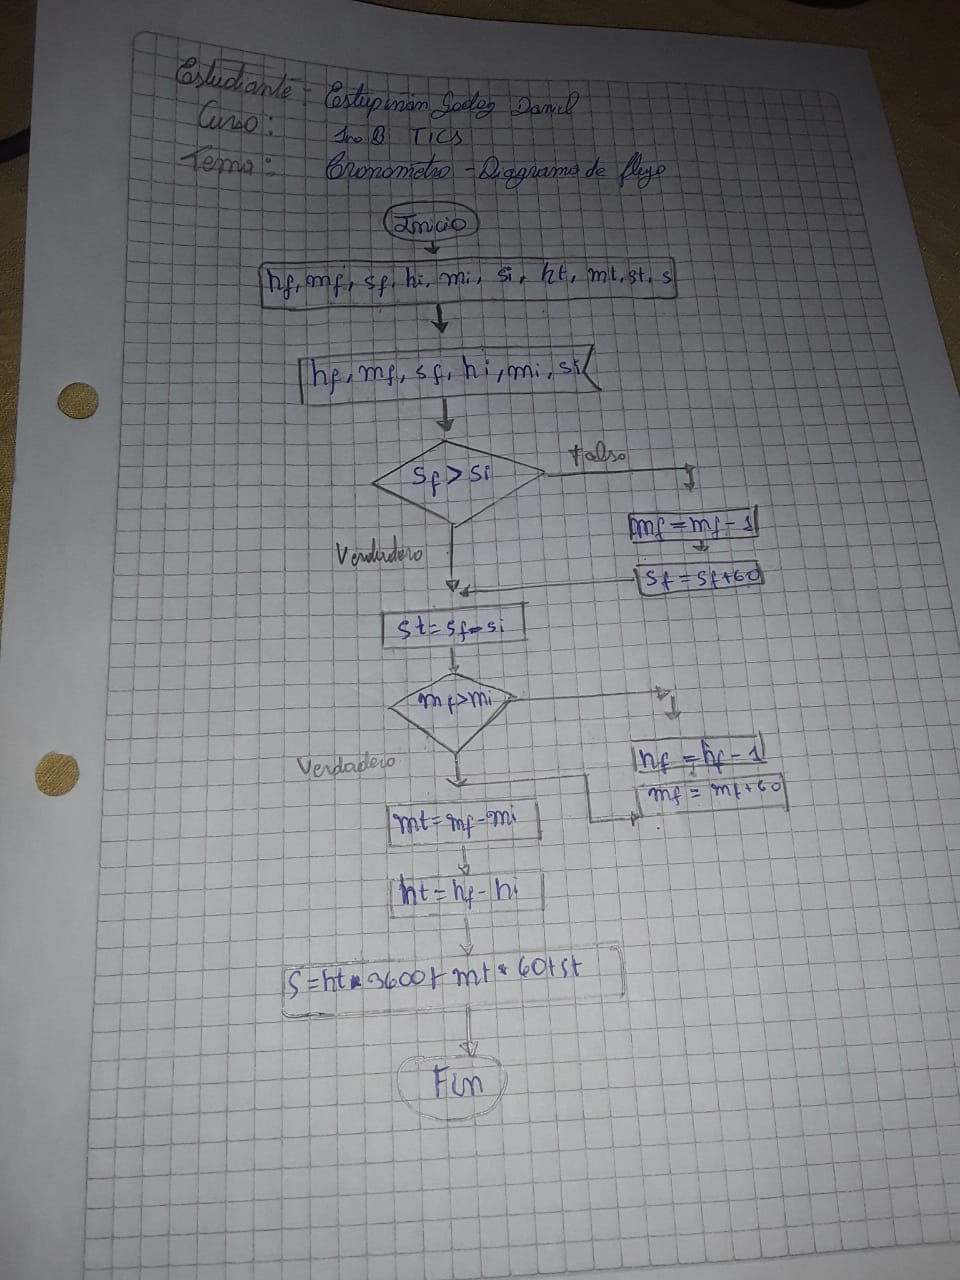 Estudiante- Estupiñán Godoy Daniel
Curso: 1ro B TICS
Tema: Cronometro - Diagrama de flujo
Inicio
hf, mf, sf, hi, mi, si, ht, mt, st, s
hf, mf, sf, hi, mi, si
sf > si
falso
mf = mf - 1
Verdadero
sf = sf+60
st = sf - si
mf > mi
hf = hf - 1
Verdadero
mf = mf + 60
mt = mf - mi
ht = hf - hi
S = ht * 3600 + mt * 60 + st
Fin